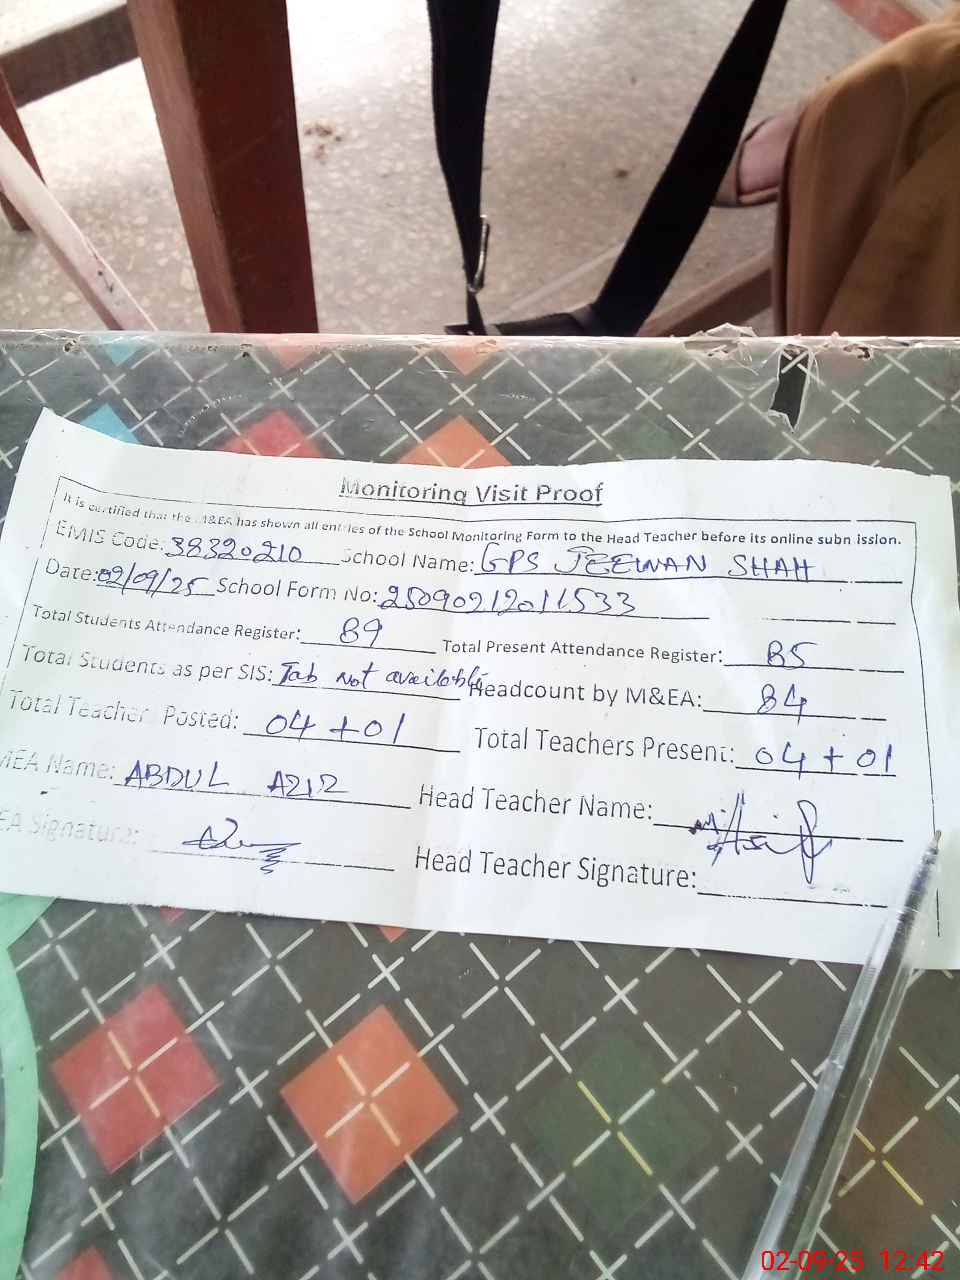 Monitoring Visit Proof
It is certified that the M&EA has shown all entries of the School Monitoring Form to the Head Teacher before its online submission.
EMIS Code: 38320210 School Name: GPS JEEWAN SHAH
Date: 02/09/25 School Form No: 25090212011533
Total Students Attendance Register: 89 Total Present Attendance Register: 85
Total Students as per SIS: Tab not available Headcount by M&EA: 84
Total Teacher Posted: 04 + 01 Total Teachers Present: 04 + 01
MEA Name: ABDUL AZIZ Head Teacher Name:
EA Signature: Head Teacher Signature:
02-09-25 12:42